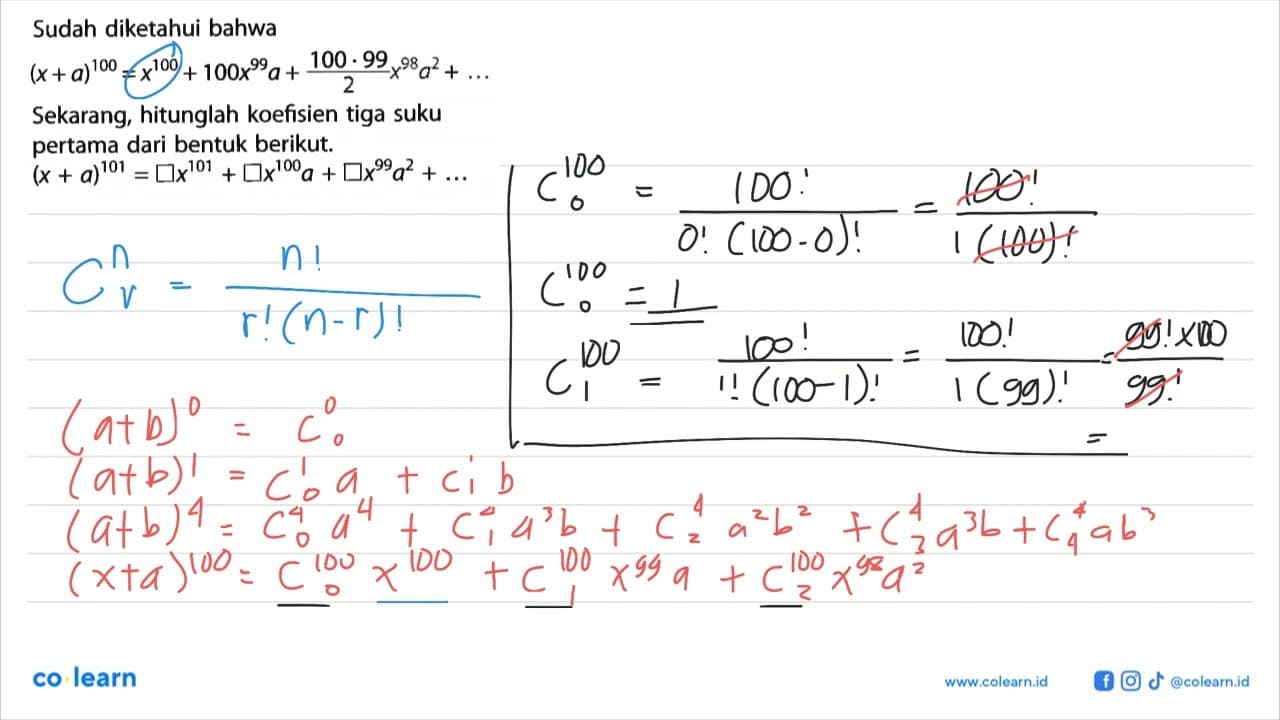 Sudah diketahui bahwa
(x + a)^100 = x^100 + 100x^99a + (100 · 99)/2 x^98a^2 + ...
Sekarang, hitunglah koefisien tiga suku
pertama dari bentuk berikut.
(x + a)^101 = □x^101 + □x^100a + □x^99a^2 + ...
C^n_r = n! / r!(n-r)!
C^100_0 = 100! / 0! (100-0)! = 100! / 1 (100)!
C^100_0 = 1
C^100_1 = 100! / 1! (100-1)! = 100! / 1 (99)! = 99! x 100 / 99!
=
(a+b)^0 = C^0_0
(a+b)^1 = C^1_0 a + C^1_1 b
(a+b)^4 = C^4_0 a^4 + C^4_1 a^3b + C^4_2 a^2b^2 + C^4_3 a^3b + C^4_4 ab^3
(x+a)^100 = C^100_0 x^100 + C^100_1 x^99 a + C^100_2 x^98 a^2
co learn
www.colearn.id
@colearn.id